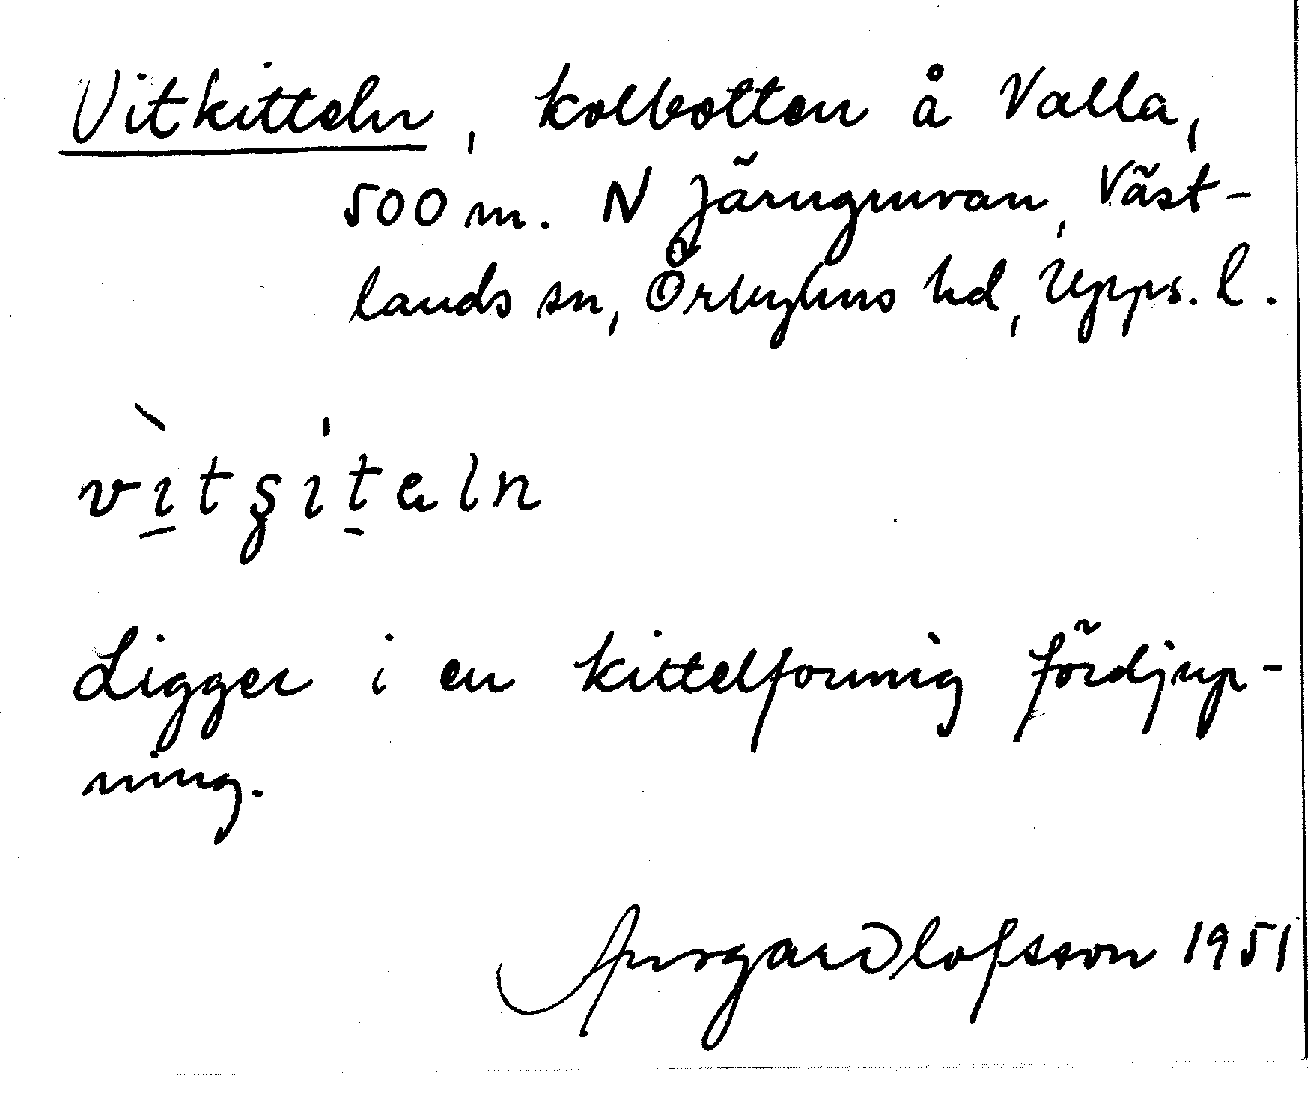 Vitkitteln, kolbotten å Valla,
500 m. N Järngruvan, Väst-
lands sn, Örbyhus hd, Upps. l.
vìtʂitəln
Ligger i en kittelformig fördjup-
ning.
Olofsson 1951